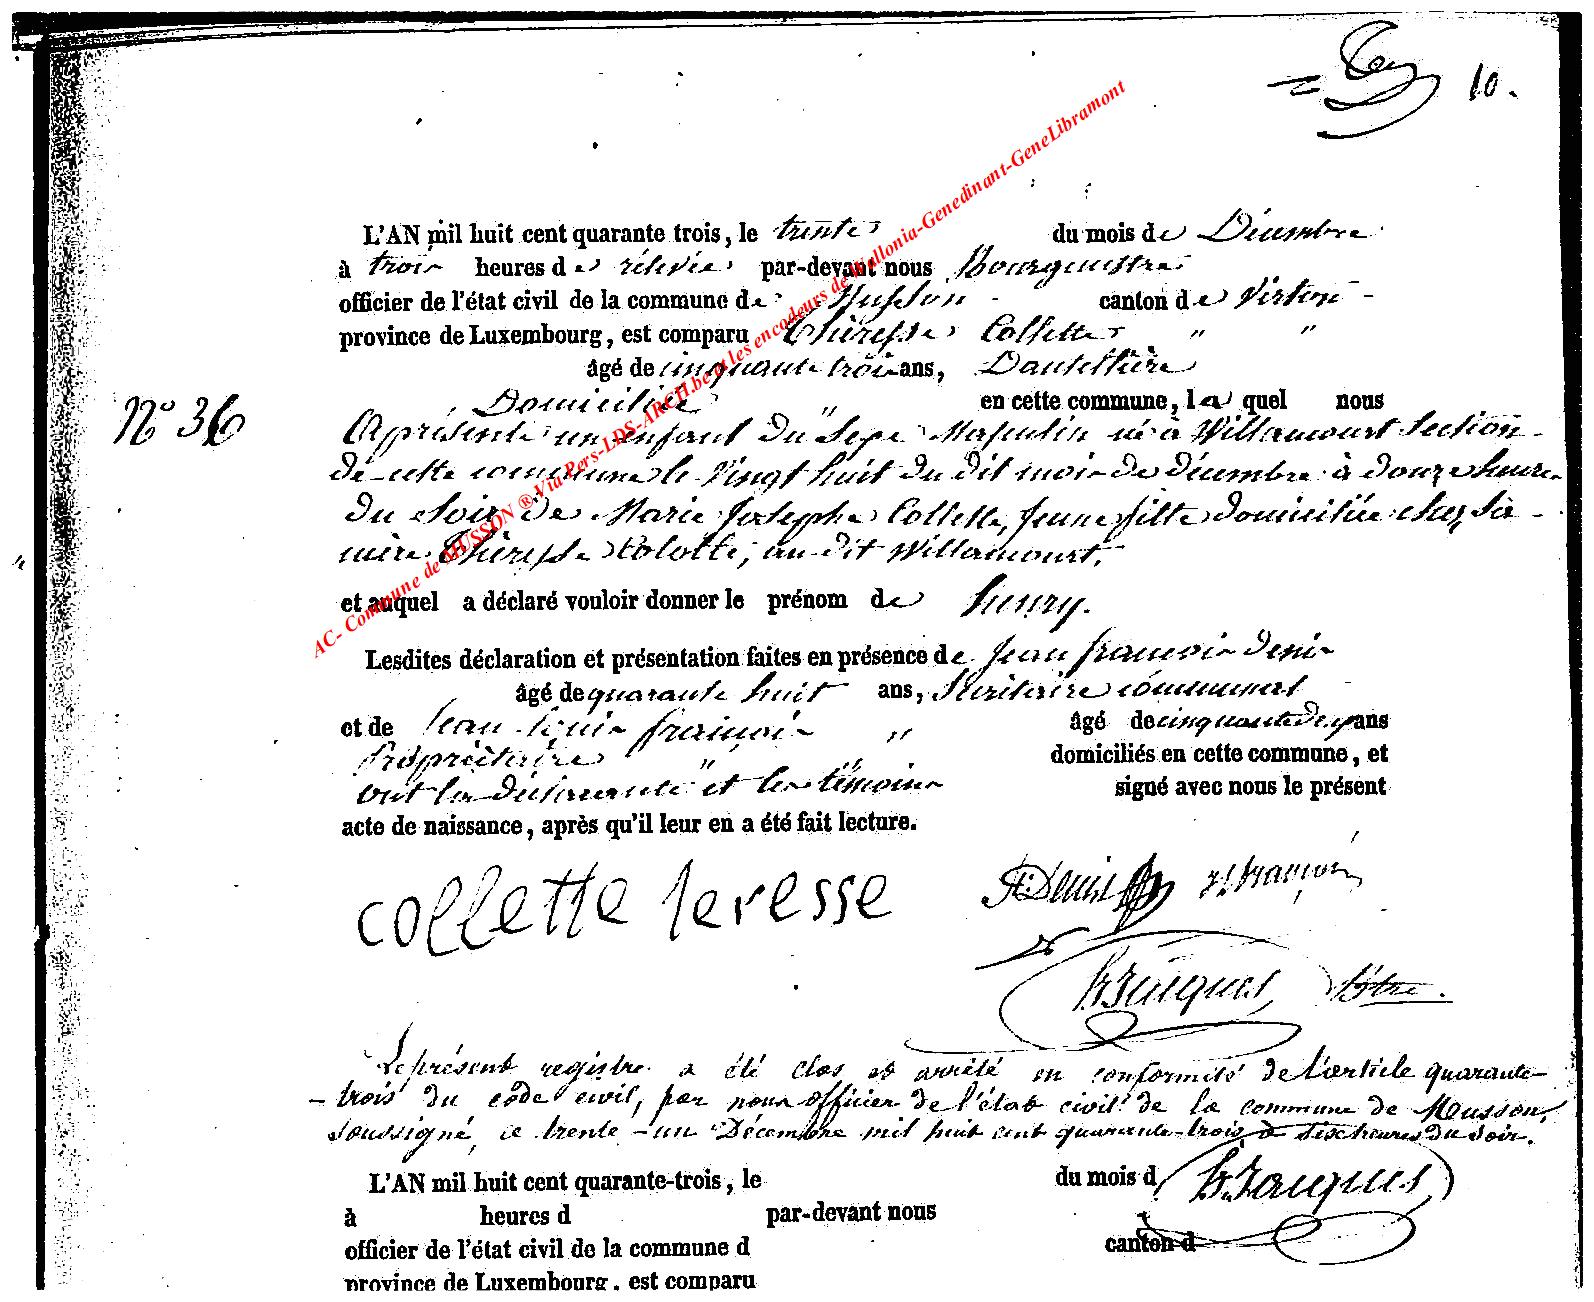 10.
L'AN mil huit cent quarante trois, le trente du mois de Décembre
à trois heures de relevée par-devant nous Bourguestre
officier de l'état civil de la commune de Musson canton de Virton
province de Luxembourg, est comparu Théresse Collette " "
âgé de cinquante trois ans, Dantellière
Domiciliée en cette commune, la quel nous
N° 36
A présenté un enfant du Sexe Masculin né à Willancourt Section
de cette commune le vingt huit du dit mois de décembre à douze heures
du soir, de Marie Josephe Collette, jeune fille domiciliée chez sa
mère Théresse Colotte, au dit Willancourt.
et auquel a déclaré vouloir donner le prénom de henry.
Lesdites déclaration et présentation faites en présence de Jean françois denis
âgé de quarante huit ans, Sécritaire communal
et de Jean Louis françois " âgé de cinquante deux ans
Propriètaire domiciliés en cette commune, et
ont la déclarante " et les témoins signé avec nous le présent
acte de naissance, après qu'il leur en a été fait lecture.
collette teresse
Denis françois
Jacques
Le présent registre a été clos et arrêté en conformité de l'article quarante-
-trois du code civil, par nous officier de l'état civil de la commune de Musson,
soussigné, ce trente-un Décembre mil huit cent quarante-trois, à six heures du soir.
L'AN mil huit cent quarante-trois, le du mois d
Jacques
à heures d par-devant nous
officier de l'état civil de la commune d canton d
province de Luxembourg, est comparu
AC- Commune de MUSSON ® Via Pers-LDS-ARCH.be et les encodeurs de Wallonia-Genedinant-GeneLibramont